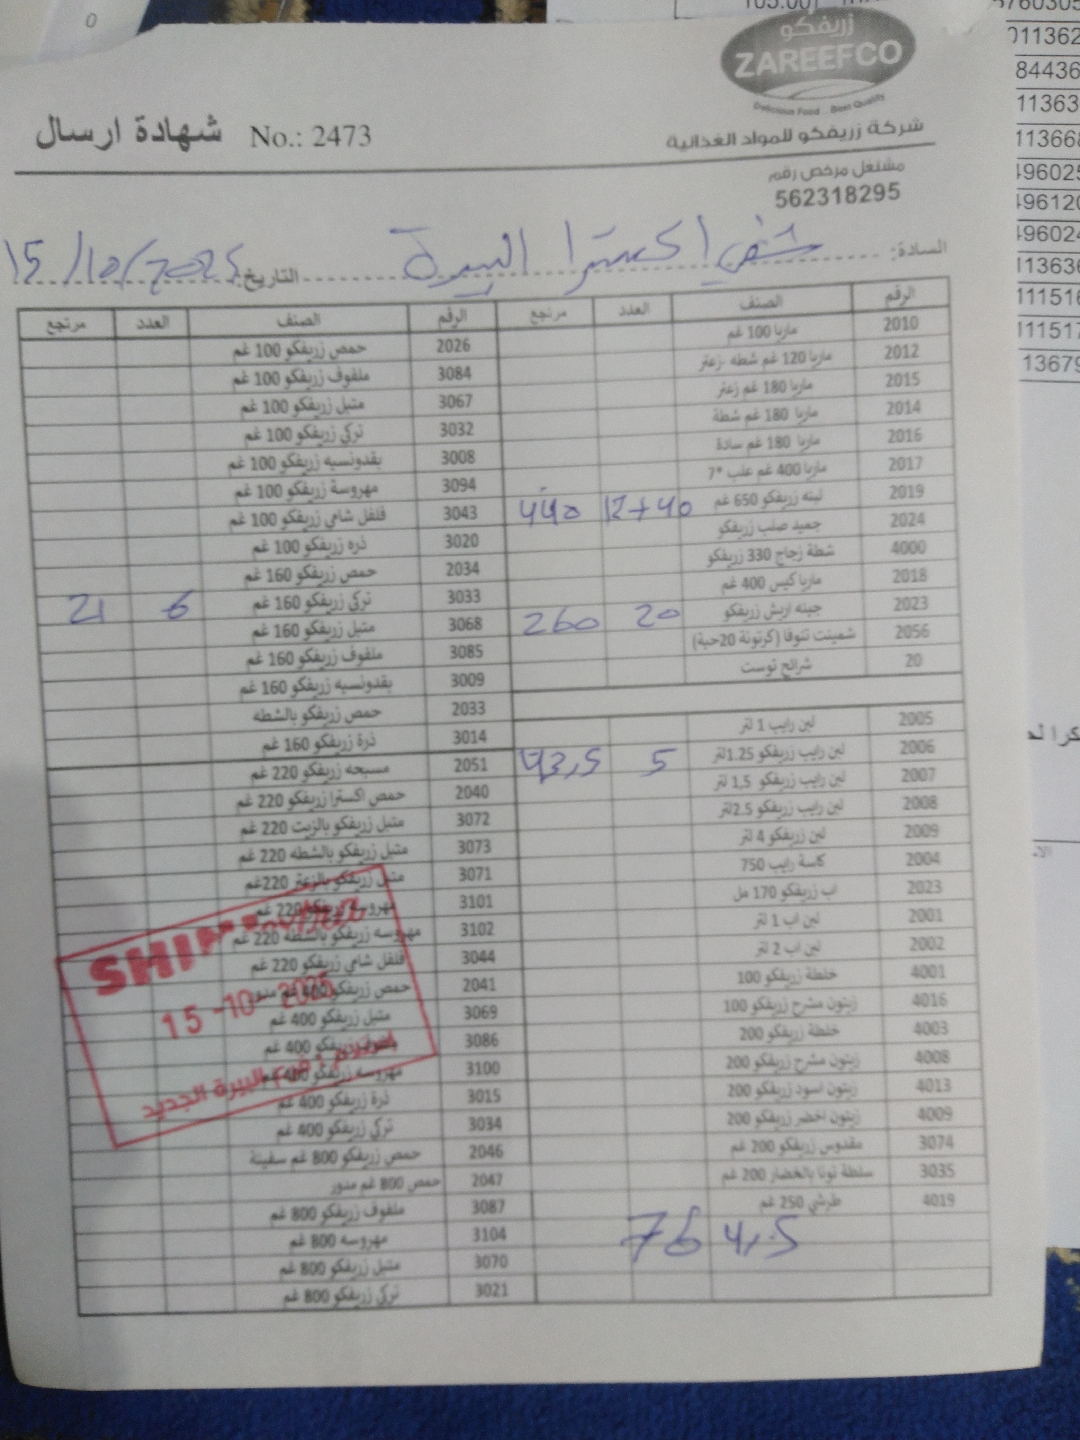 زريفكو
ZAREEFCO
Delicious Food .. Best Quality
شركة زريفكو للمواد الغذائية
شهادة ارسال No.: 2473
مشتغل مرخص رقم
562318295
السادة: شني اكسترا البيرة التاريخ: 15/10/2025
الرقم الصنف العدد مرتجع الرقم الصنف العدد مرتجع
2010 ماريا 100 غم 2026 حمص زريفكو 100 غم
2012 ماريا 120 غم شطه -زعتر 3084 ملفوف زريفكو 100 غم
2015 ماريا 180 غم زعتر 3067 متبل زريفكو 100 غم
2014 ماريا 180 غم شطة 3032 تركي زريفكو 100 غم
2016 ماريا 180 غم سادة 3008 بقدونسيه زريفكو 100 غم
2017 ماريا 400 غم علب *7 3094 مهروسة زريفكو 100 غم
2019 لبنه زريفكو 650 غم 12+40 440 3043 فلفل شامي زريفكو 100 غم
2024 جميد صلب زريفكو 3020 ذره زريفكو 100 غم
4000 شطة زجاج 330 زريفكو 2034 حمص زريفكو 160 غم
2018 ماريا كيس 400 غم 3033 تركي زريفكو 160 غم 6 21
2023 جبنه اريش زريفكو 20 260 3068 متبل زريفكو 160 غم
2056 شمينت تنوفا (كرتونة 20حبة) 3085 ملفوف زريفكو 160 غم
20 شرائح توست 3009 بقدونسيه زريفكو 160 غم
2033 حمص زريفكو بالشطه
2005 لبن رايب 1 لتر 3014 ذرة زريفكو 160 غم
2006 لبن رايب زريفكو 1.25لتر 5 43,5 2051 مسبحه زريفكو 220 غم
2007 لبن رايب زريفكو 1,5 لتر 2040 حمص اكسترا زريفكو 220 غم
2008 لبن رايب زريفكو 2.5لتر 3072 متبل زريفكو بالزيت 220 غم
2009 لبن زريفكو 4 لتر 3073 متبل زريفكو بالشطه 220 غم
2004 كاسة رايب 750 3071 متبل زريفكو بالزعتر 220غم
2023 اب زريفكو 170 مل 3101 مهروسه زريفكو 220 غم
2001 لبن اب 1 لتر 3102 مهروسه زريفكو بالشطه 220 غم
2002 لبن اب 2 لتر 3044 فلفل شامي زريفكو 220 غم
4001 خلطة زريفكو 100 2041 حمص زريفكو 400 غم
4016 زيتون مشرح زريفكو 100 3069 متبل زريفكو 400 غم
4003 خلطة زريفكو 200 3086 ملفوف زريفكو 400 غم
4008 زيتون مشرح زريفكو 200 3100 مهروسه زريفكو 400 غم
4013 زيتون اسود زريفكو 200 3015 ذرة زريفكو 400 غم
4009 زيتون اخضر زريفكو 200 3034 تركي زريفكو 400 غم
3074 مقدوس زريفكو 200 غم 2046 حمص زريفكو 800 غم سفينة
3035 سلطة تونا بالخضار 200 غم 2047 حمص 800 غم منور
4019 طرشي 250 غم 3087 ملفوف زريفكو 800 غم
764,5 3104 مهروسه 800 غم
3070 متبل زريفكو 800 غم
3021 تركي زريفكو 800 غم
15 -10- 2025
البيرة الجديد
011362
84436
11363
113668
496025
496120
496024
113636
111516
111517
13679